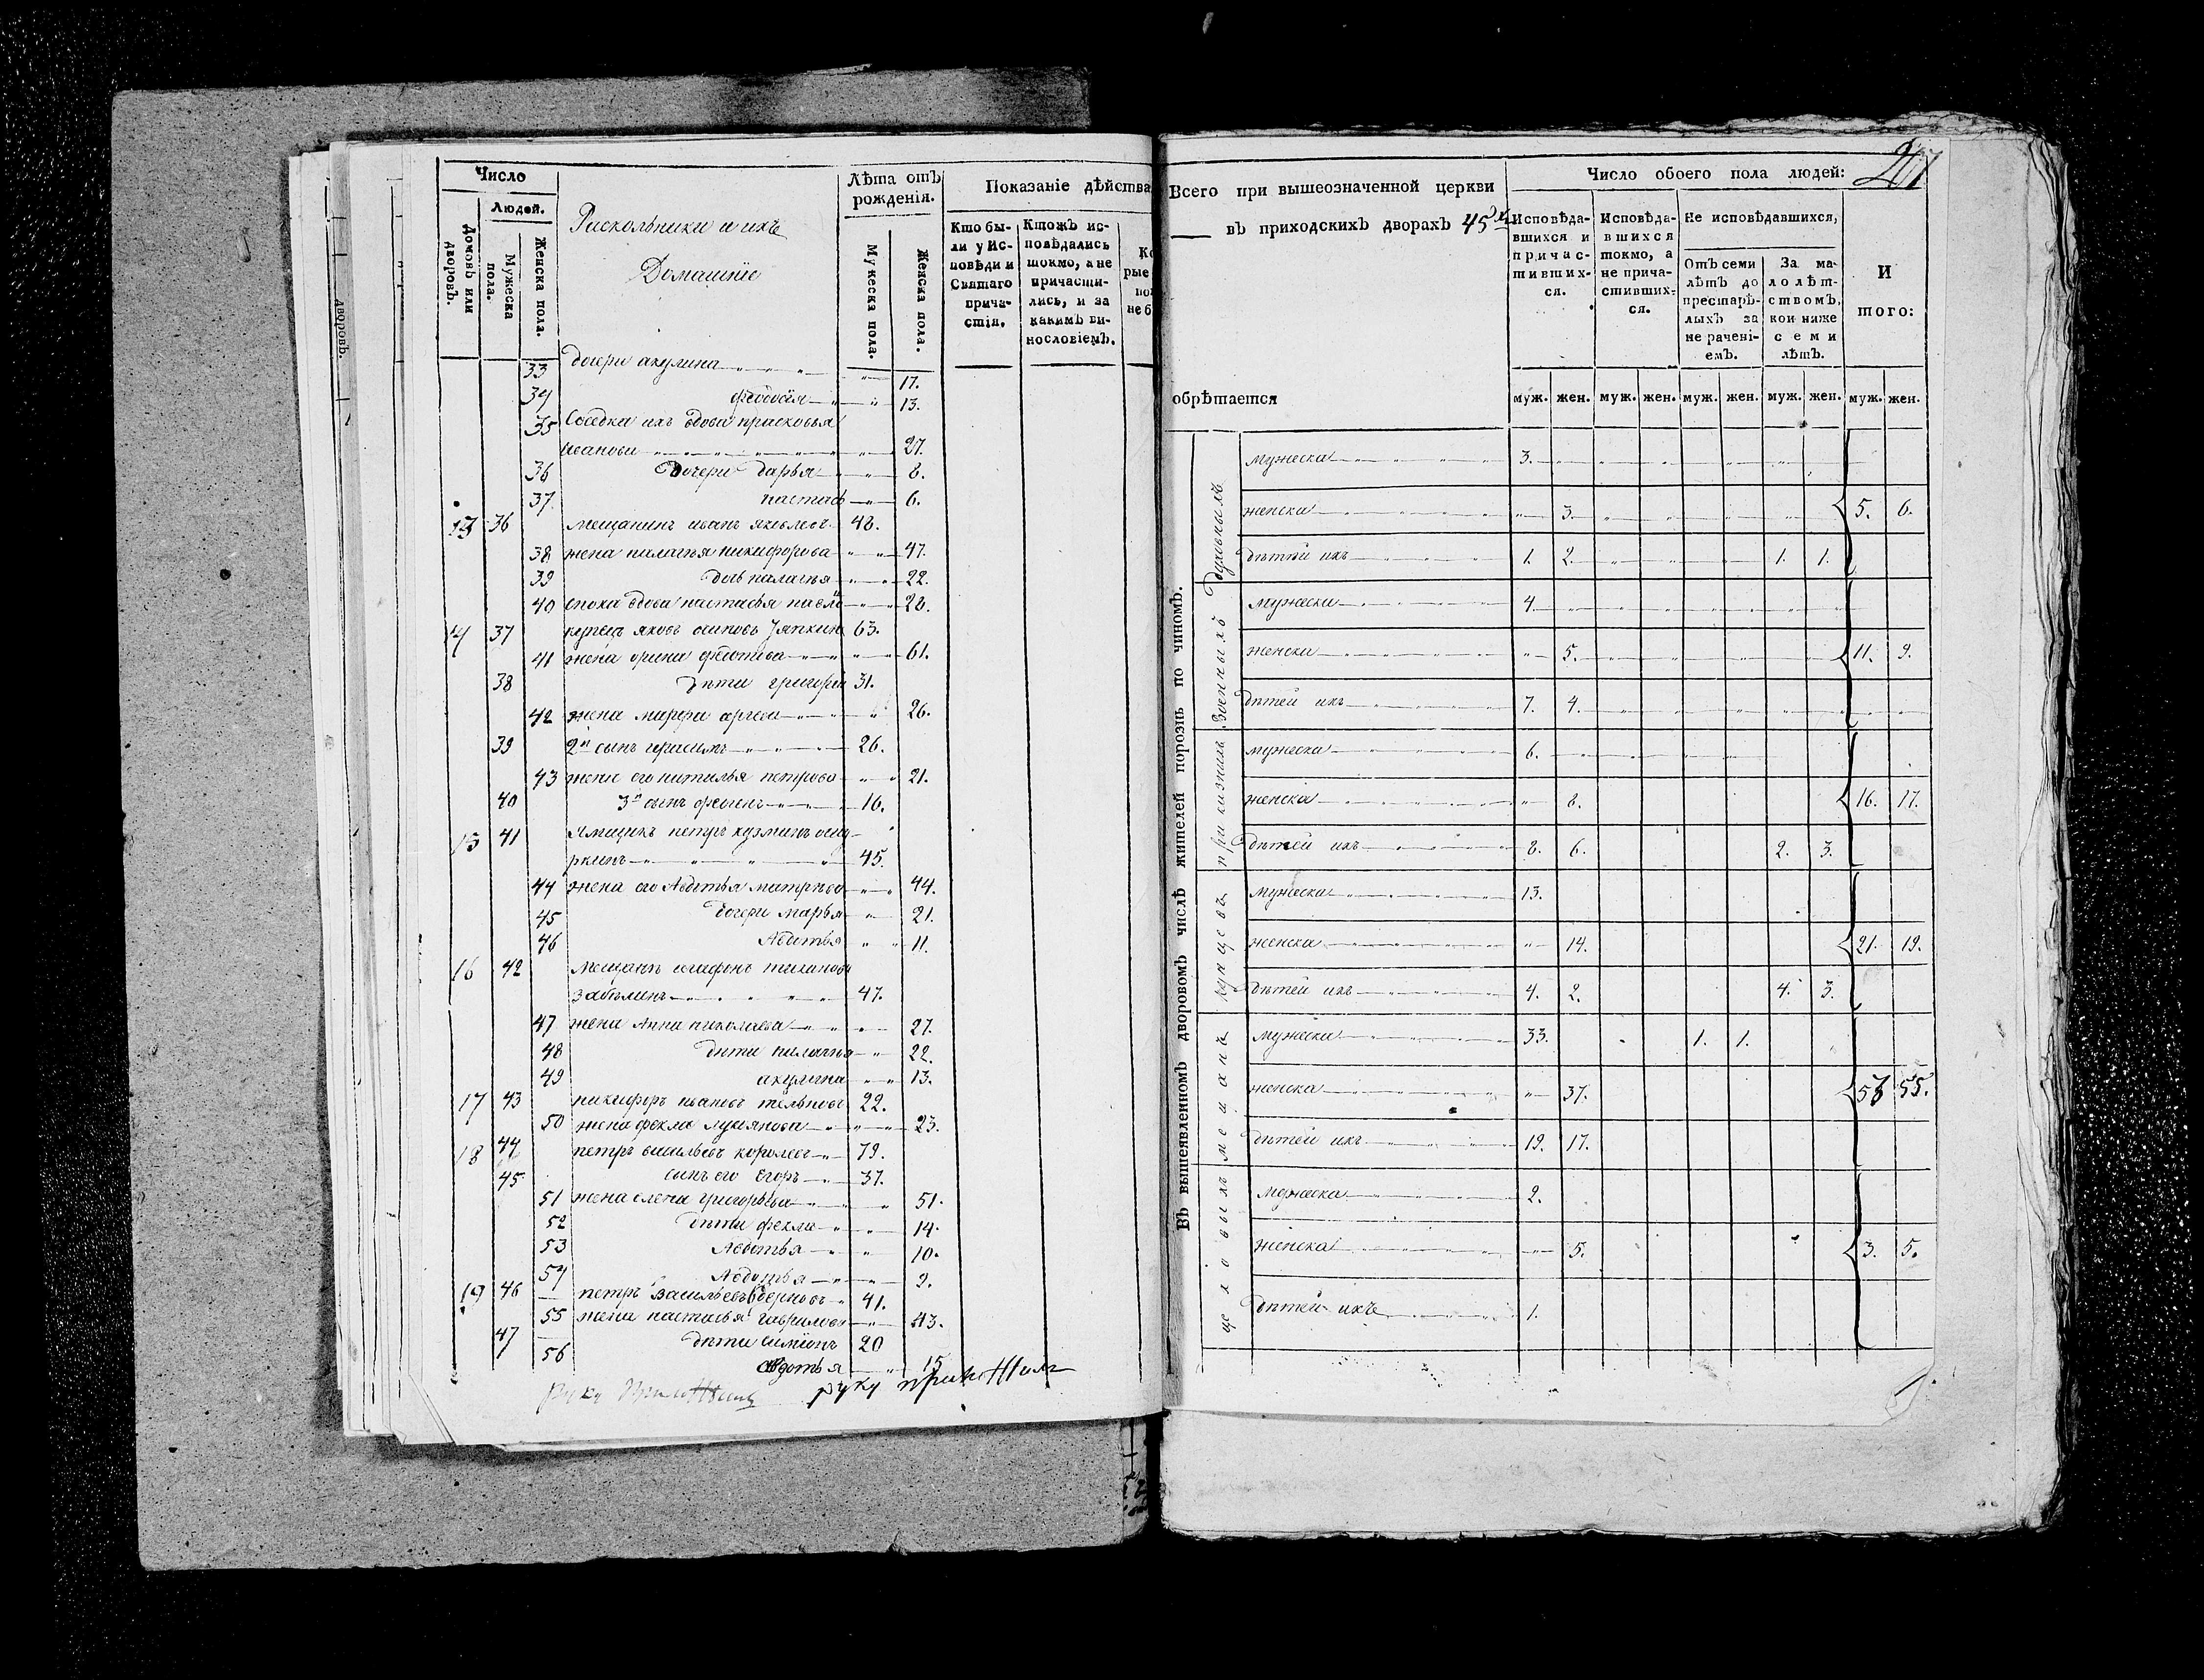 Число
Людей.
Домовъ или дворовъ.
Мужеска пола.
Женска пола.
Раскольники и ихъ
Домашнїе
Лѣта отъ рожденія.
Мужеска пола.
Женска пола.
Показаніе дѣйства
Кто бы-
ли у Ис-
повѣди и
Святаго
прича-
стія.
Ктожъ ис-
повѣдались
токмо, а не
причасти-
лись, и за
какимъ ви-
нословіемъ.
33 дочери акулина 17.
34 13.
35 Соседка ихъ вдова прасковья
иванова 27.
36 Дочери дарья 8.
37. настась 6.
13 36 мещанинъ иванъ яковлевъ 48.
38 жена пилагѣя никифорова 47.
39 дочь палагѣя 22.
40 сноха вдова настасья 28.
14 37 купецъ яковъ осиповъ 63.
41 жена орина 61.
38 дѣти григорей 31.
42 жена 26.
39 2й сынъ герасимъ 26.
43 жена его наталья петрова 21.
40 3й сынъ 16.
15 41 Ямщикъ петръ кузминъ
ркинъ 45.
44 жена его Авдотья 44.
45 дочери марья 21.
46 Авдотья 11.
16 42 Мещанинъ
47.
47 жена Анна николаева 27.
48 дѣти пилагѣя 22.
49 акулина 13.
17 43 никифоръ ивановъ 22.
50 жена фекла лукянова 23.
18 44 петръ васильевъ королевъ 79.
45 сынъ его Егоръ 37.
51 жена елена григорьева 51.
52 дѣти фекла 14.
53 Авдотья 10.
54 Авдотья 2.
19 46 петръ Васильевъ 41.
55 жена настасья гаврилова 43.
47 дѣти симїонъ 20
56 авдотья 15
руку приложилъ
руку приложилъ
Всего при вышеозначенной церкви
въ приходскихъ дворахъ 45
обрѣтается
Число обоего пола людей:
Исповѣда-
вшихся и
причас-
тивших-
ся.
Исповѣда-
вшихся
токмо, а
не прича-
стивших-
ся.
Не исповѣдавшихся,
Отъ семи
лѣтъ до
престарѣ-
лыхъ за
нерачені-
емъ.
За ма-
лолѣт-
ствомъ,
кои ниже
семи
лѣтъ.
И
того:
муж. жен. муж. жен. муж. жен. муж. жен. муж. жен.
Въ вышеявленномъ дворовомъ числѣ жителей порознь по чиномъ.
Духовныхъ
мужеска 3.
женска 3. 5. 6.
дѣтей ихъ 1. 2. 1. 1.
Военныхъ
мужеска 4.
женска 5. 11. 9.
дѣтей ихъ 7. 4.
приказныхъ
мужеска 6.
женска 8. 16. 17.
дѣтей ихъ 8. 6. 2. 3.
купцевъ
мужеска 13.
женска 14. 21. 19.
дѣтей ихъ 4. 2. 4. 3.
мещанъ
мужеска 33. 1. 1.
женска 37. 55.
дѣтей ихъ 19. 17.
цеховыхъ
мужеска 2.
женска 5. 3. 5.
дѣтей ихъ 1.